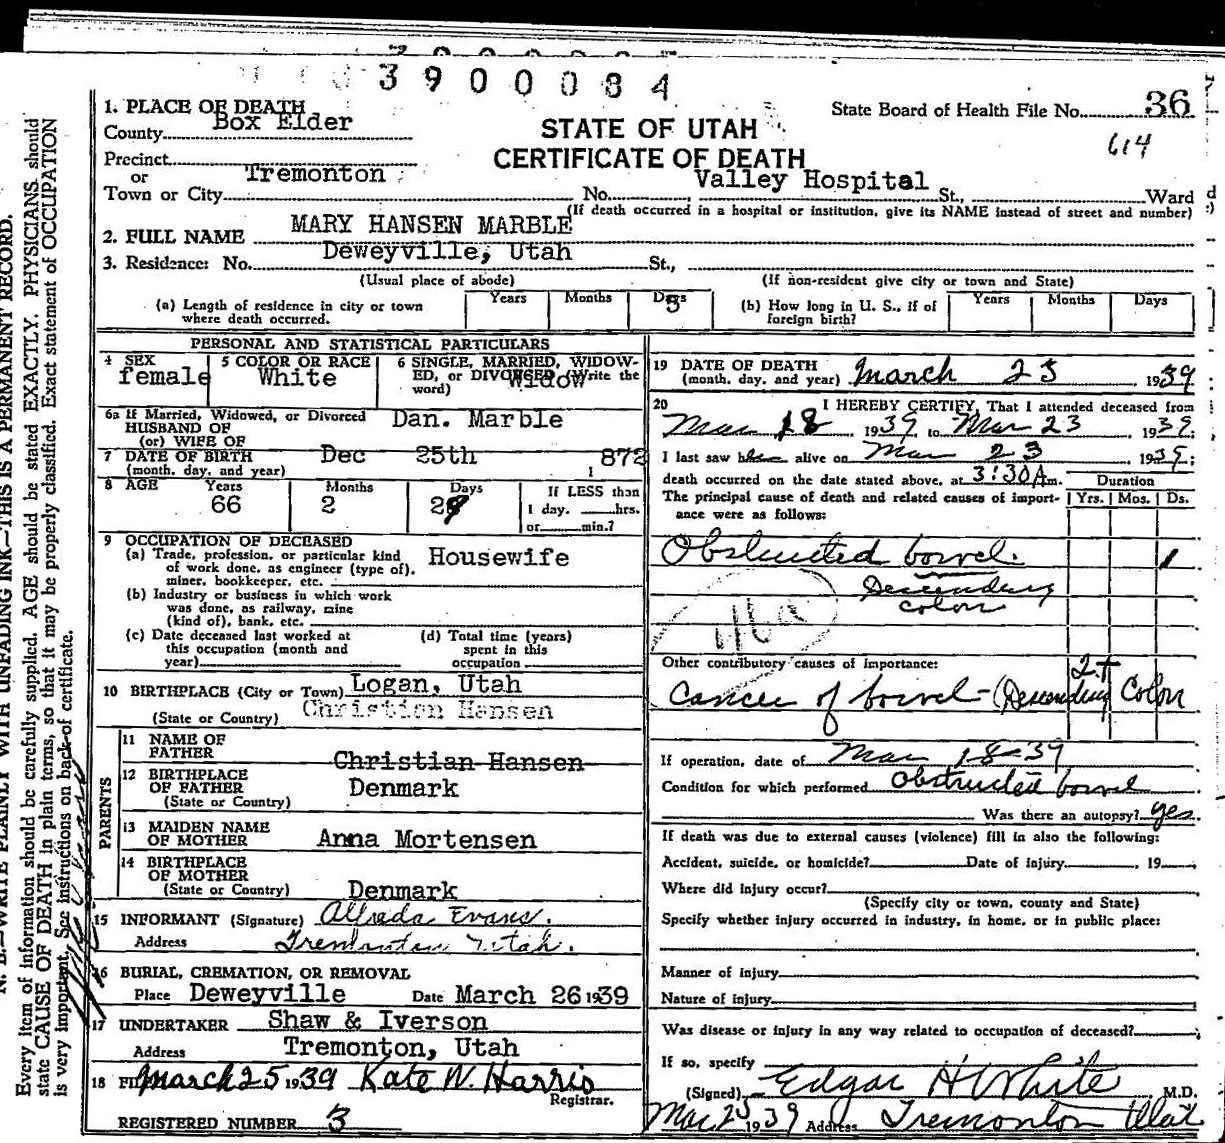 3900084
1. PLACE OF DEATH
County Box Elder
State Board of Health File No. 36
STATE OF UTAH
614
CERTIFICATE OF DEATH
Precinct
or
Town or City Tremonton No. Valley Hospital St., Ward
(If death occurred in a hospital or institution, give its NAME instead of street and number)
2. FULL NAME MARY HANSEN MARBLE
3. Residence: No. Deweyville, Utah St.,
(Usual place of abode) (If non-resident give city or town and State)
(a) Length of residence in city or town where death occurred. Years Months Days 5
(b) How long in U. S., if of foreign birth? Years Months Days
PERSONAL AND STATISTICAL PARTICULARS
4 SEX female
5 COLOR OR RACE White
6 SINGLE, MARRIED, WIDOWED, or DIVORCED (Write the word) Widow
6a If Married, Widowed, or Divorced
HUSBAND OF
(or) WIFE OF Dan. Marble
7 DATE OF BIRTH
(month, day, and year) Dec 25th 1872
8 AGE Years 66 Months 2 Days If LESS than
1 day, hrs.
or min.?
9 OCCUPATION OF DECEASED
(a) Trade, profession, or particular kind
of work done, as engineer (type of),
miner, bookkeeper, etc. Housewife
(b) Industry or business in which work
was done, as railway, mine
(kind of), bank, etc.
(c) Date deceased last worked at
this occupation (month and
year)
(d) Total time (years)
spent in this
occupation
10 BIRTHPLACE (City or Town) Logan, Utah
(State or Country) Christian Hansen
PARENTS
11 NAME OF
FATHER Christian Hansen
12 BIRTHPLACE
OF FATHER Denmark
(State or Country)
13 MAIDEN NAME
OF MOTHER Anna Mortensen
14 BIRTHPLACE
OF MOTHER
(State or Country) Denmark
15 INFORMANT (Signature) Alfreda Evans.
Address Tremonton Utah.
16 BURIAL, CREMATION, OR REMOVAL
Place Deweyville Date March 26 1939
17 UNDERTAKER Shaw & Iverson
Address Tremonton, Utah
18 FILED March 25 1939 Kate W. Harris
Registrar.
REGISTERED NUMBER 3
19 DATE OF DEATH
(month, day, and year) March 23, 1939
20 I HEREBY CERTIFY, That I attended deceased from
Mar 18 1939 to Mar 23 1939;
I last saw her alive on Mar 23 1939;
death occurred on the date stated above, at 3:30 A m.
The principal cause of death and related causes of importance were as follows:
Duration
Yrs. Mos. Ds.
Obstructed bowel. 1
Descending
colon
Other contributory causes of importance:
2+
Cancer of bowel - (Descending Colon
If operation, date of Mar 18-39
Condition for which performed Obstructed bowel
Was there an autopsy? yes.
If death was due to external causes (violence) fill in also the following:
Accident, suicide, or homicide? Date of injury , 19
Where did injury occur?
(Specify city or town, county and State)
Specify whether injury occurred in industry, in home, or in public place:
Manner of injury
Nature of injury
Was disease or injury in any way related to occupation of deceased?
If so, specify
(Signed) Edgar H White M.D.
Mar 25 1939 Address Tremonton Utah
N. B.—WRITE PLAINLY WITH UNFADING INK—THIS IS A PERMANENT RECORD.
Every item of information should be carefully supplied. AGE should be stated EXACTLY. PHYSICIANS should
state CAUSE OF DEATH in plain terms, so that it may be properly classified. Exact statement of OCCUPATION
is very important. See instructions on back of certificate.